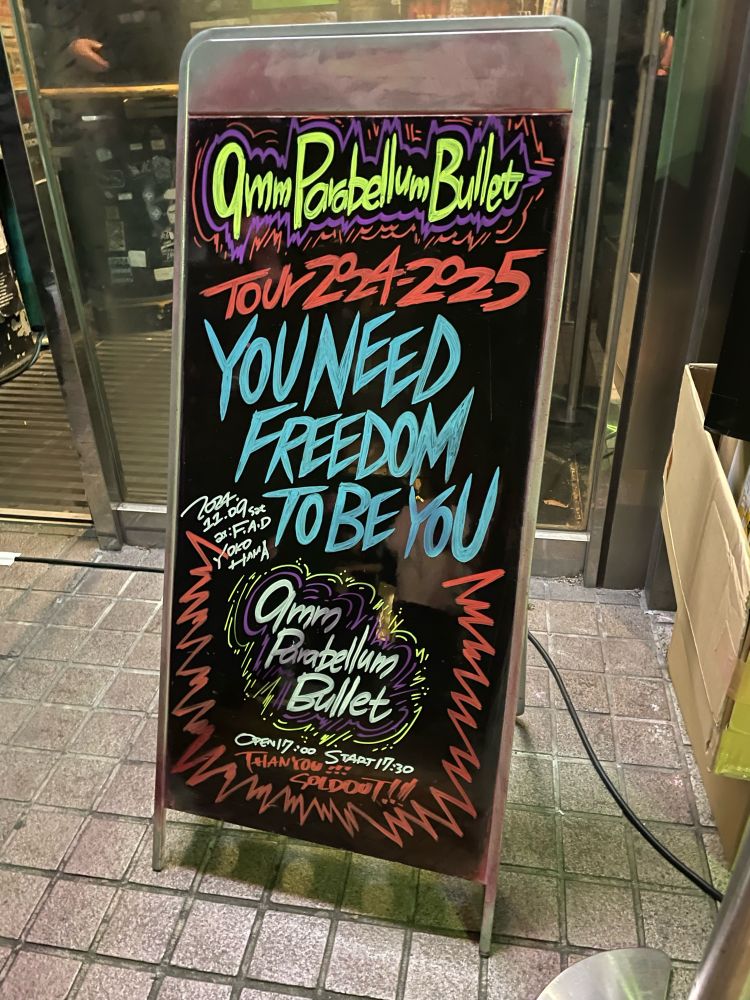 9mm Parabellum Bullet
TOUR 2024-2025
YOU NEED
FREEDOM
TO BE YOU
2024.
11.09 sat
at:F.A.D
YOKO
HAMA
9mm
Parabellum
Bullet
OPEN 17:00 START 17:30
THANYOU!!!
SOLDOUT!!!